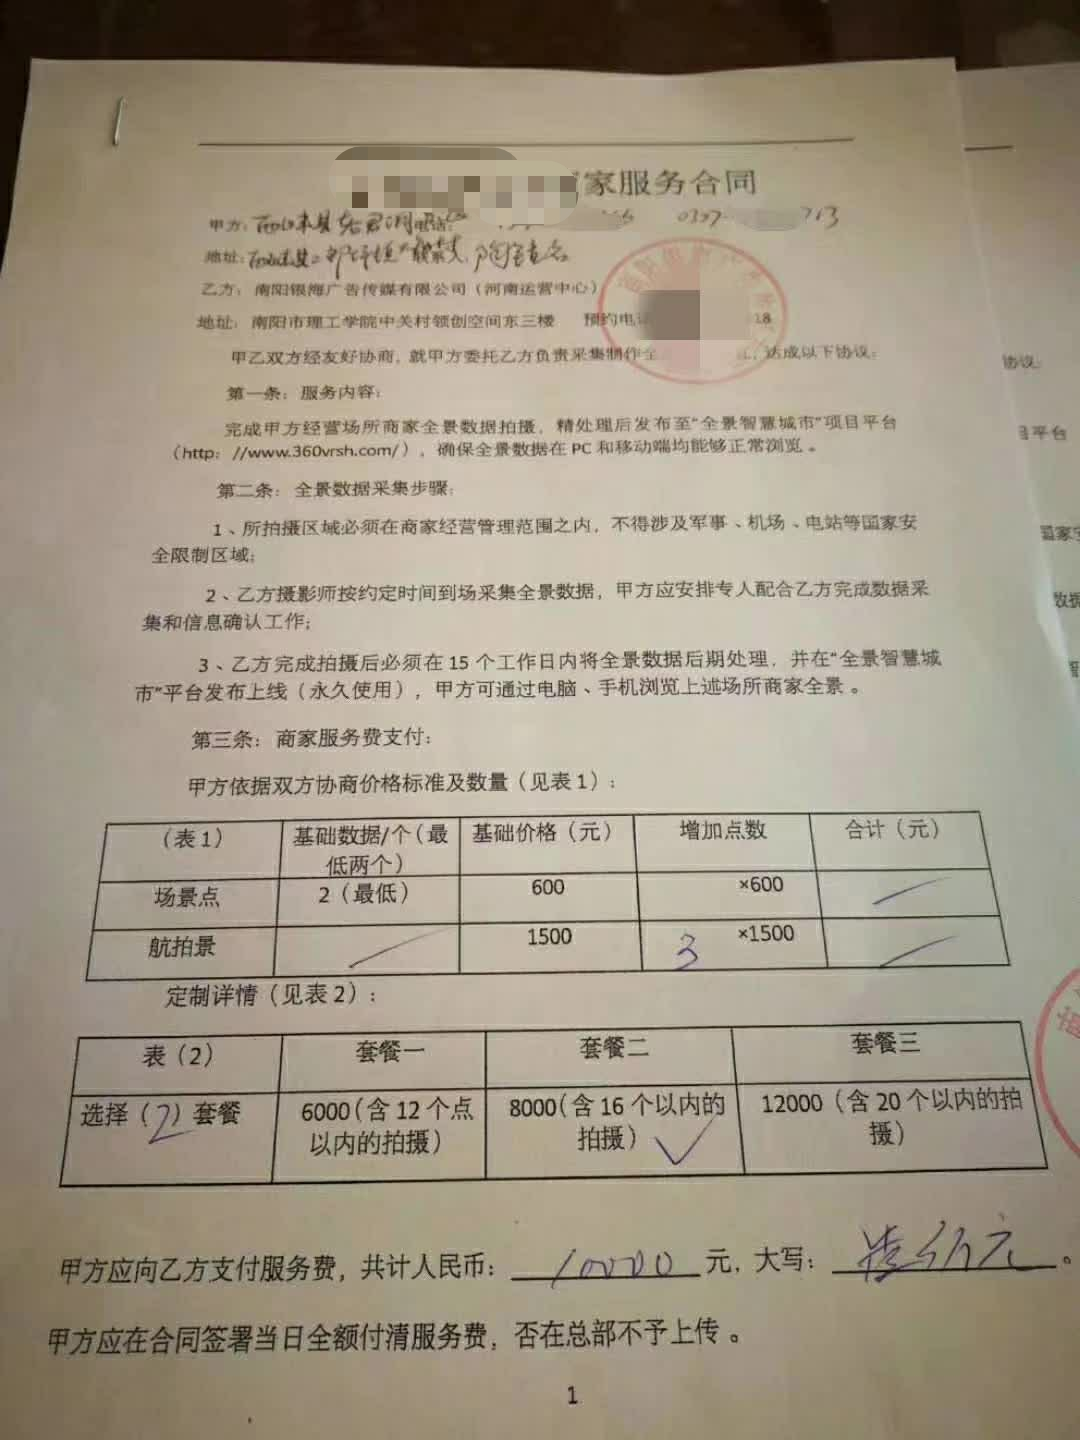 家服务合同
甲方: 西峡县 电话: 0377- 713
地址: 西峡县二郎坪镇
乙方: 南阳银海广告传媒有限公司（河南运营中心）
地址: 南阳市理工学院中关村领创空间东三楼 预约电话 18
甲乙双方经友好协商，就甲方委托乙方负责采集制作全 ，达成以下协议:
第一条: 服务内容:
完成甲方经营场所商家全景数据拍摄，精处理后发布至“全景智慧城市”项目平台
（http: //www.360vrsh.com/），确保全景数据在 PC 和移动端均能够正常浏览 。
第二条: 全景数据采集步骤:
1、所拍摄区域必须在商家经营管理范围之内，不得涉及军事、机场、电站等国家安
全限制区域;
2、乙方摄影师按约定时间到场采集全景数据，甲方应安排专人配合乙方完成数据采
集和信息确认工作;
3、乙方完成拍摄后必须在 15 个工作日内将全景数据后期处理，并在“全景智慧城
市”平台发布上线（永久使用），甲方可通过电脑、手机浏览上述场所商家全景 。
第三条: 商家服务费支付:
甲方依据双方协商价格标准及数量（见表 1）:
（表 1） 基础数据/个（最低两个） 基础价格（元） 增加点数 合计（元）
场景点 2（最低） 600 ×600
航拍景 1500 3 ×1500
定制详情（见表 2）:
表（2） 套餐一 套餐二 套餐三
选择（2）套餐 6000（含 12 个点以内的拍摄） 8000（含 16 个以内的拍摄）✓ 12000（含 20 个以内的拍摄）
甲方应向乙方支付服务费，共计人民币: 10000 元，大写: 壹万元 。
甲方应在合同签署当日全额付清服务费，否在总部不予上传 。
1
协议:
目平台
国家安
数据